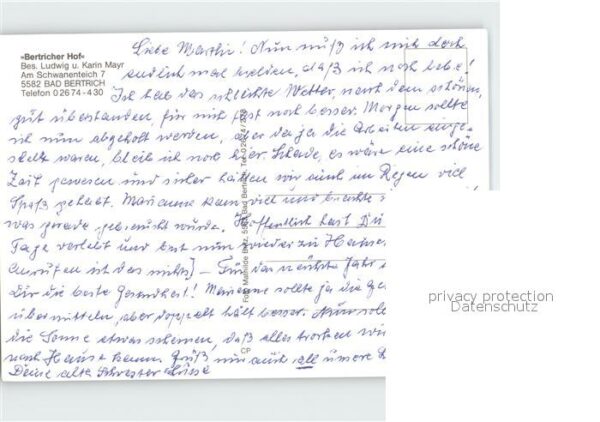 »Bertricher Hof«
Bes. Ludwig u. Karin Mayr
Am Schwanenteich 7
5582 BAD BERTRICH
Telefon 0 26 74 - 4 30
Liebe ! Nun muß ich mich doch
endlich mal melden, daß ich noch lebe!
Ich hab das schlechte Wetter, nach dem schönen,
gut überstanden, für mich fast noch besser. Morgen sollte
ich nun abgeholt werden, aber da ja die Arbeiten einge-
stellt waren, bleib ich noch hier. Schade, es wäre eine schöne
Zeit gewesen und sicher hätten wir auch im Regen viel
Spaß gehabt. Marianne kam viel und brachte
was gerade gebraucht wurde. Hoffentlich hast Du
Tage verlebt und bist nun wieder zu Hause
Anrufen ist das nichts) - Für das nächste Jahr
Dir die beste Gesundheit! Marianne sollte ja die
übermitteln, aber doppelt hält besser. Nun soll
die Sonne etwas scheinen, daß alles trocken
nach Hause kann. Grüß nun auch all unsere
Deine alte Schwester
Foto Mathilde Bad Bertrich, Tel. 02674/
CP
privacy protection
Datenschutz